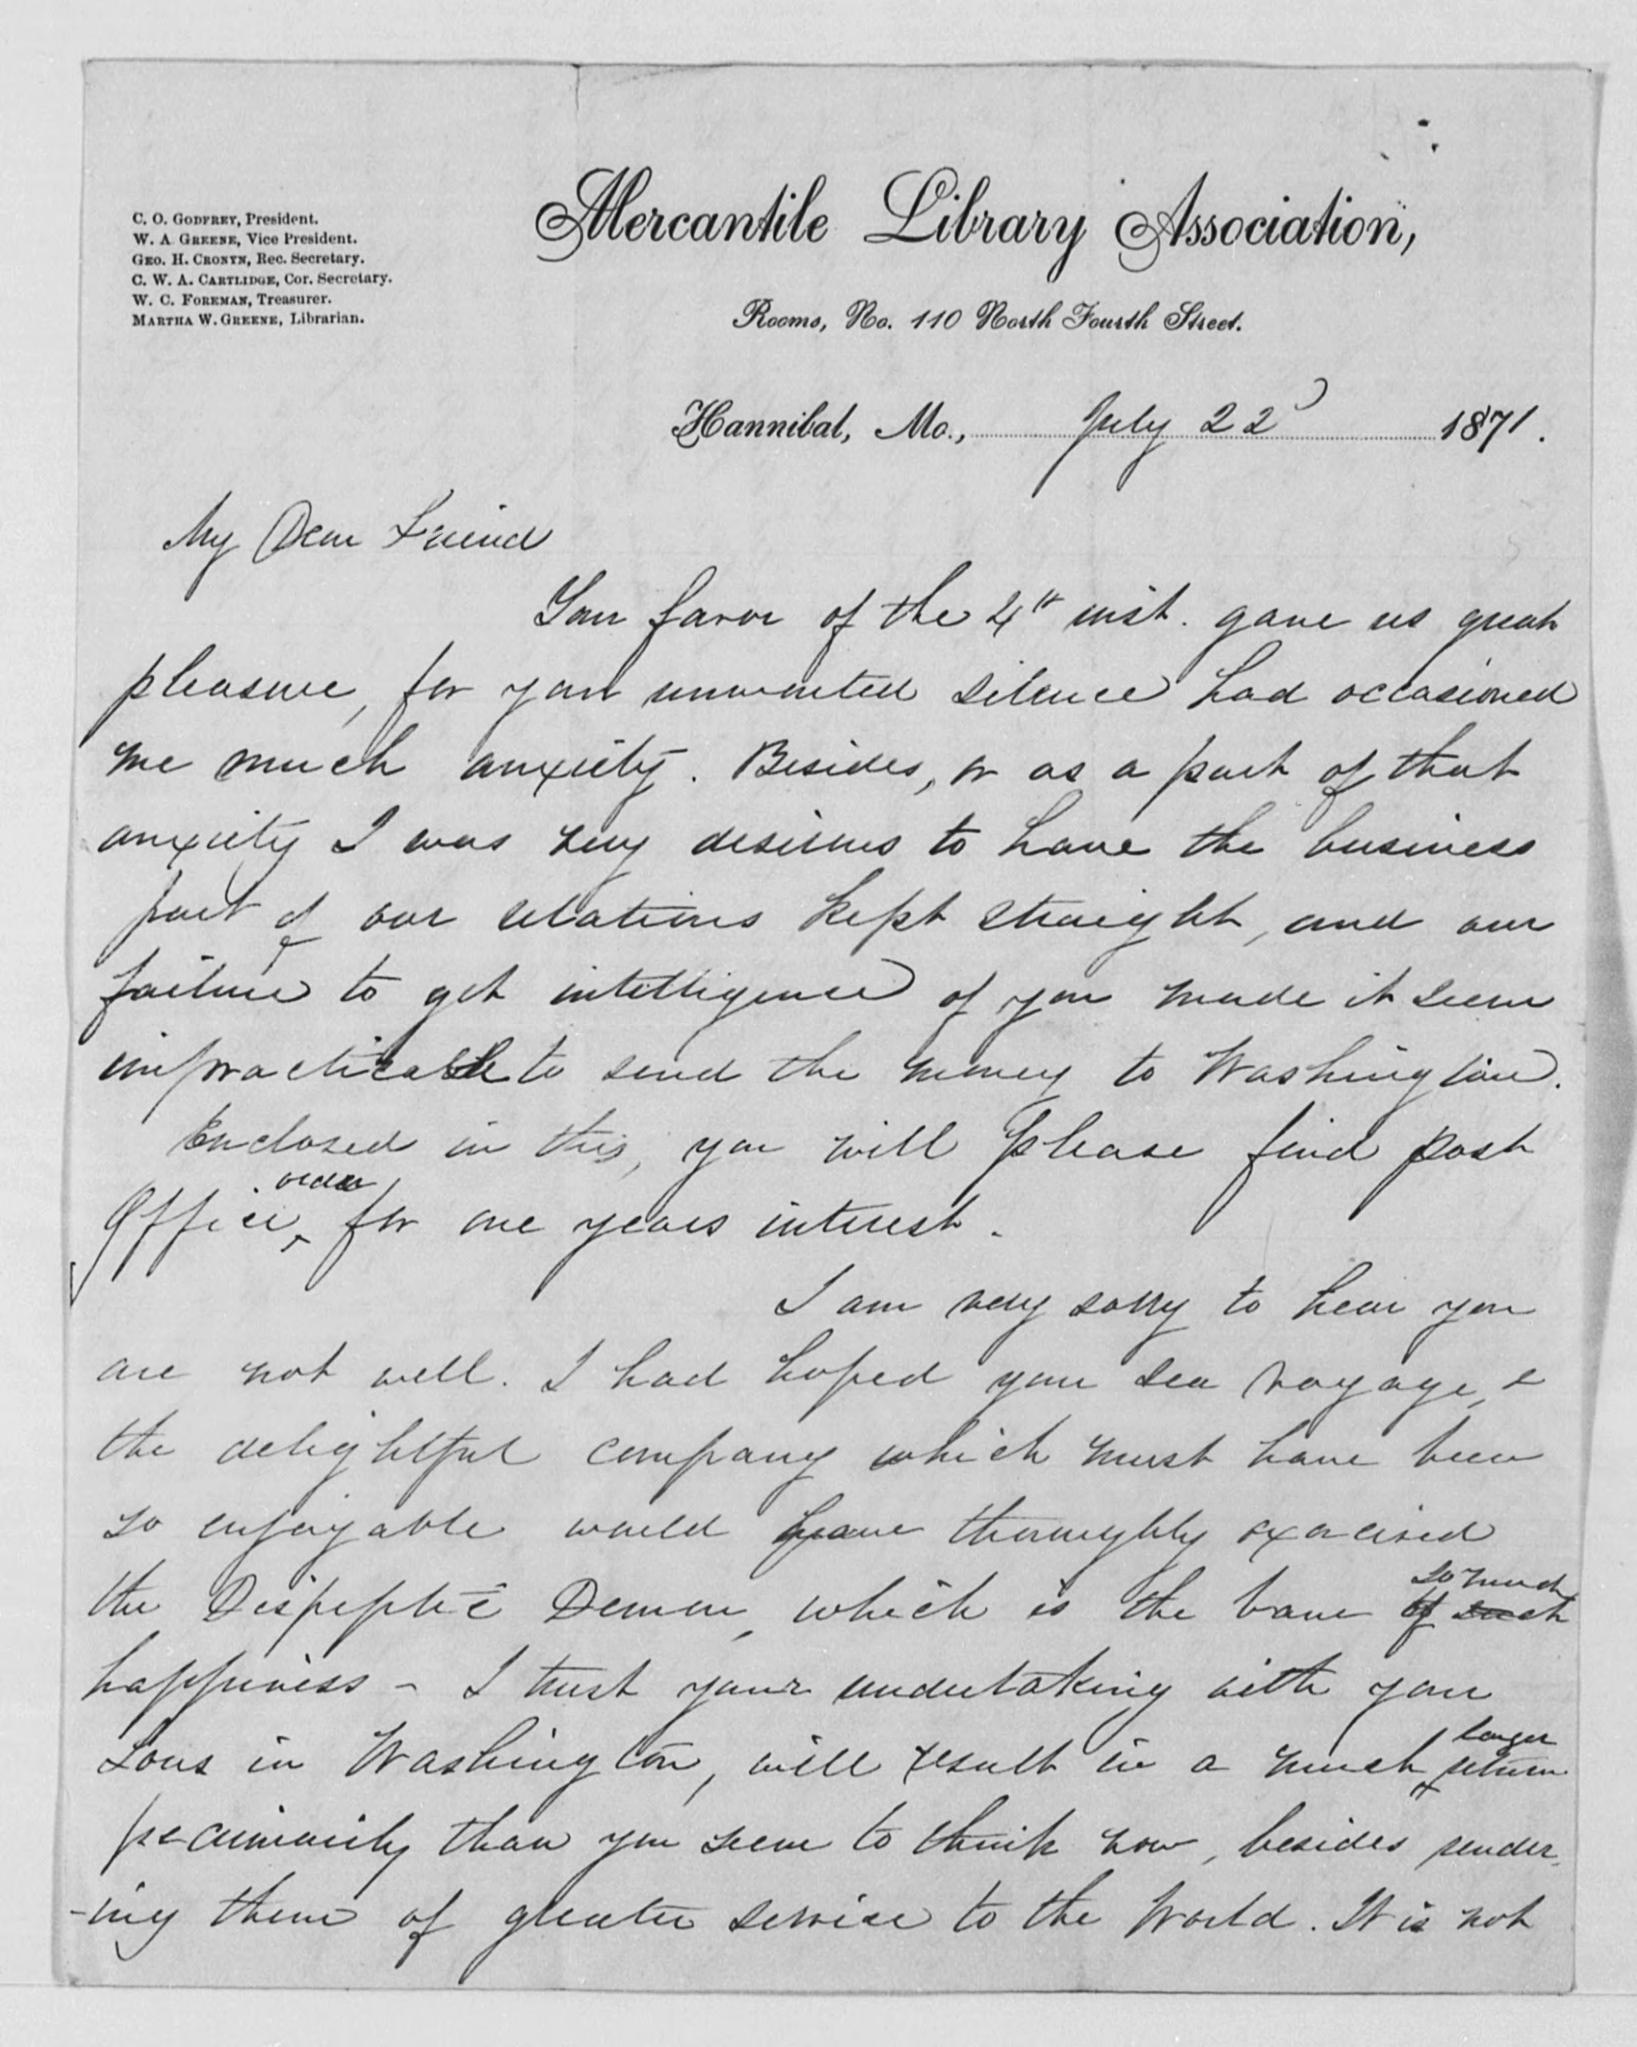 C. O. Godfrey, President.
W. A. Greene, Vice President.
Geo. H. Cronyn, Rec. Secretary.
C. W. A. Cartlidge, Cor. Secretary.
W. C. Foreman, Treasurer.
Martha W. Greene, Librarian.
Mercantile Library Association,
Rooms, No. 110 North Fourth Street.
Hannibal, Mo., July 22 1871.
My Dear Friend
Your favor of the 4th inst. gave us great
pleasure, for your unwonted silence had occasioned
me much anxiety. Besides, or as a part of that
anxiety I was very desirous to have the business
part of our relations kept straight, and our
failure to get intelligence of you made it seem
impracticable to send the money to Washington.
Enclosed in this, you will please find post
order
Office, for one years interest.
I am very sorry to hear you
are not well. I had hoped your sea voyage, &
the delightful company which must have been
so enjoyable would have thoroughly exorcised
the Dispeptic Demon, which is the bane of such
so much
happiness - I trust your undertaking with your
Sons in Washington, will result in a much return
larger
pecuniarily than you seem to think now, besides render
-ing them of greater service to the World. It is not